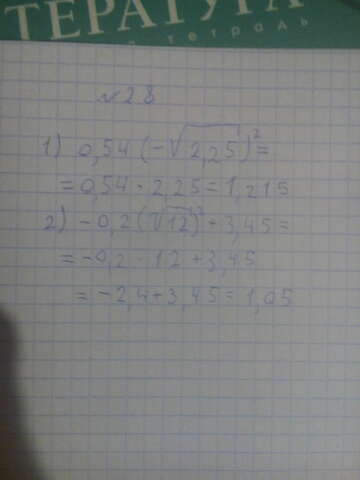 ТЕРАТУРА
тетрадь
№28
1) 0,54 (-√2,25)² =
= 0,54 · 2,25 = 1,215
2) -0,2(√12)² + 3,45 =
= -0,2 · 12 + 3,45
= -2,4 + 3,45 = 1,05